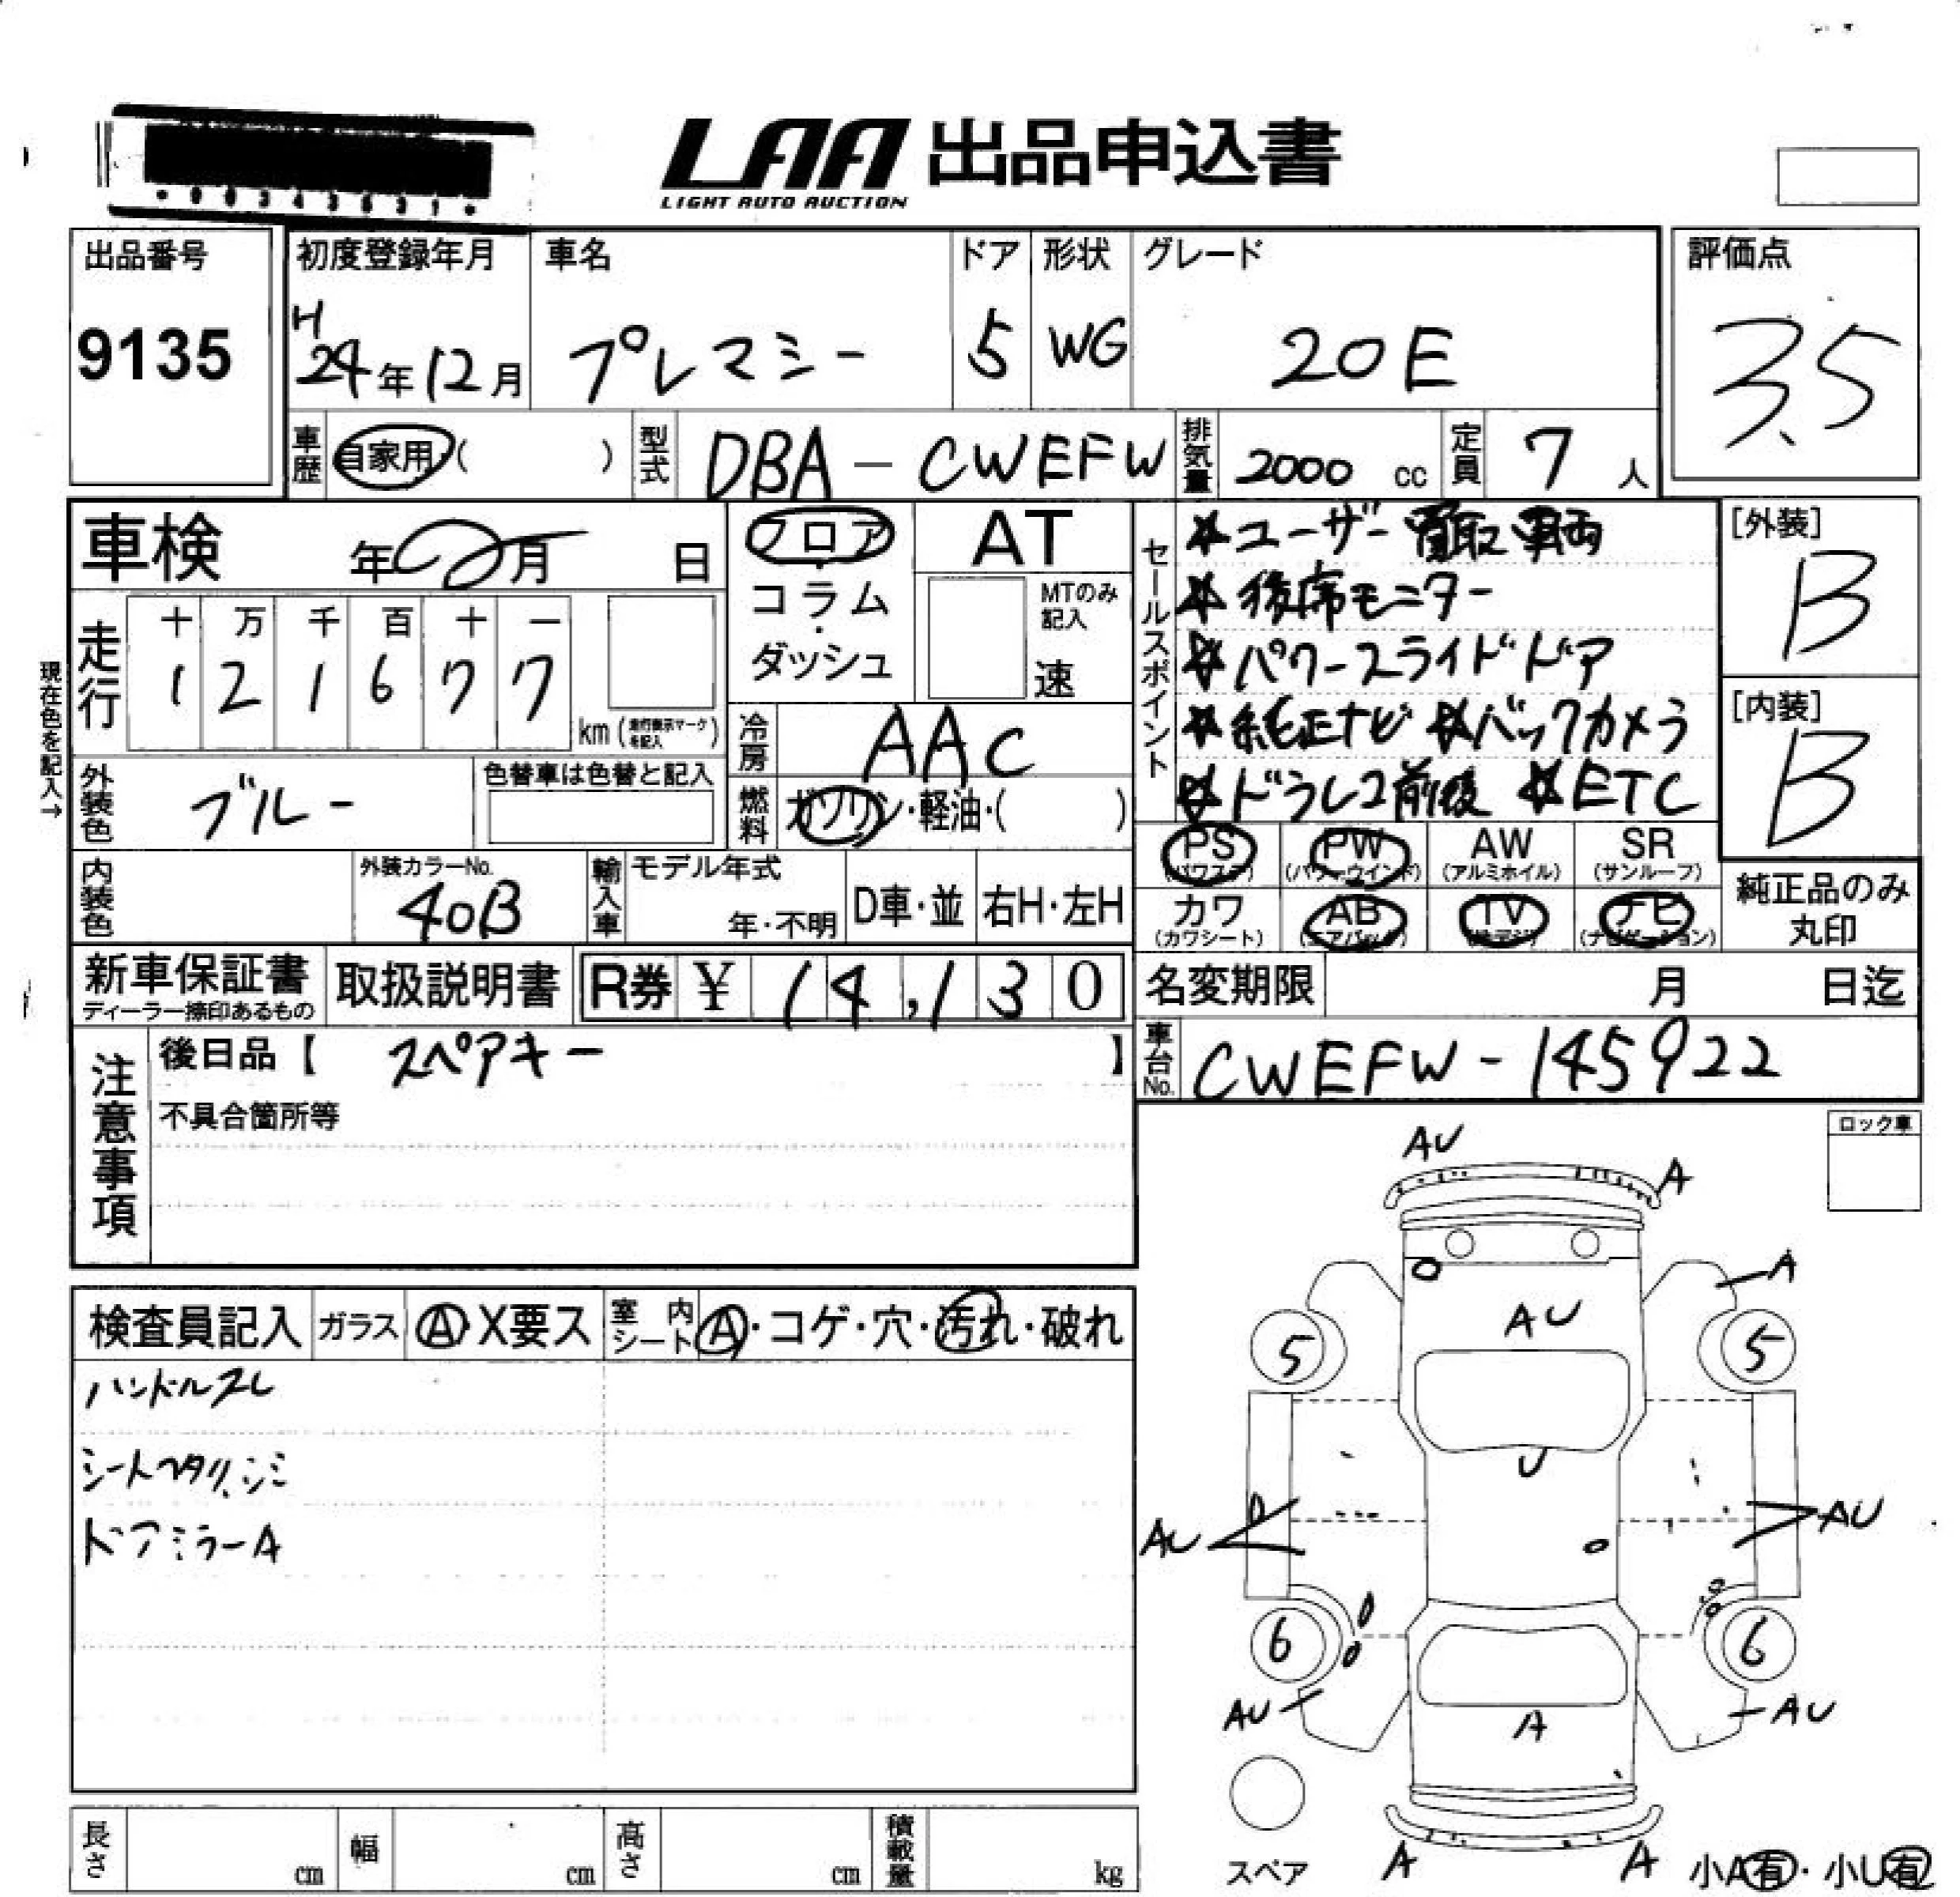 LAA 出品申込書
LIGHT AUTO AUCTION
出品番号
9135
初度登録年月
H24年12月
車名
プレマシー
ドア
5
形状
WG
グレード
20E
評価点
3.5
車歴
自家用( )
型式
DBA-CWEFW
排気量
2000 cc
定員
7人
車検 年 月 日
フロア・コラム・ダッシュ
AT
MTのみ記入
速
セールスポイント
☆ユーザー買取車両
☆後席モニター
☆パワースライドドア
☆純正ナビ ☆バックカメラ
☆ドラレコ前後 ☆ETC
[外装]
B
[内装]
B
現在色を記入→
走行
十 万 千 百 十 一
1 2 1 6 7 7
km(走行表示マークを記入)
冷房
AAC
外装色
ブルー
色替車は色替と記入
燃料
ガソリン・軽油・( )
PS
(パワステ)
PW
(パワーウインド)
AW
(アルミホイル)
SR
(サンルーフ)
カワ
(カワシート)
AB
(エアバッグ)
TV
(地デジ)
ナビ
(ナビゲーション)
純正品のみ丸印
内装色
外装カラーNo.
40B
輸入車
モデル年式
年・不明
D車・並
右H・左H
新車保証書
ディーラー捺印あるもの
取扱説明書
R券 ¥ 14,130
名変期限 月 日迄
注意事項
後日品【 スペアキー 】
不具合箇所等
車台No.
CWEFW-145922
ロック車
検査員記入
ガラス
A・X要ス
室内シート
A・コゲ・穴・汚れ・破れ
ハンドルスレ
シートヘタリ、シミ
ドアミラーA
AU
A
A
AU
5
5
U
AU
AU
6
6
AU
AU
A
A
A
スペア
小A有・小U有
長さ cm
幅 cm
高さ cm
積載量 kg